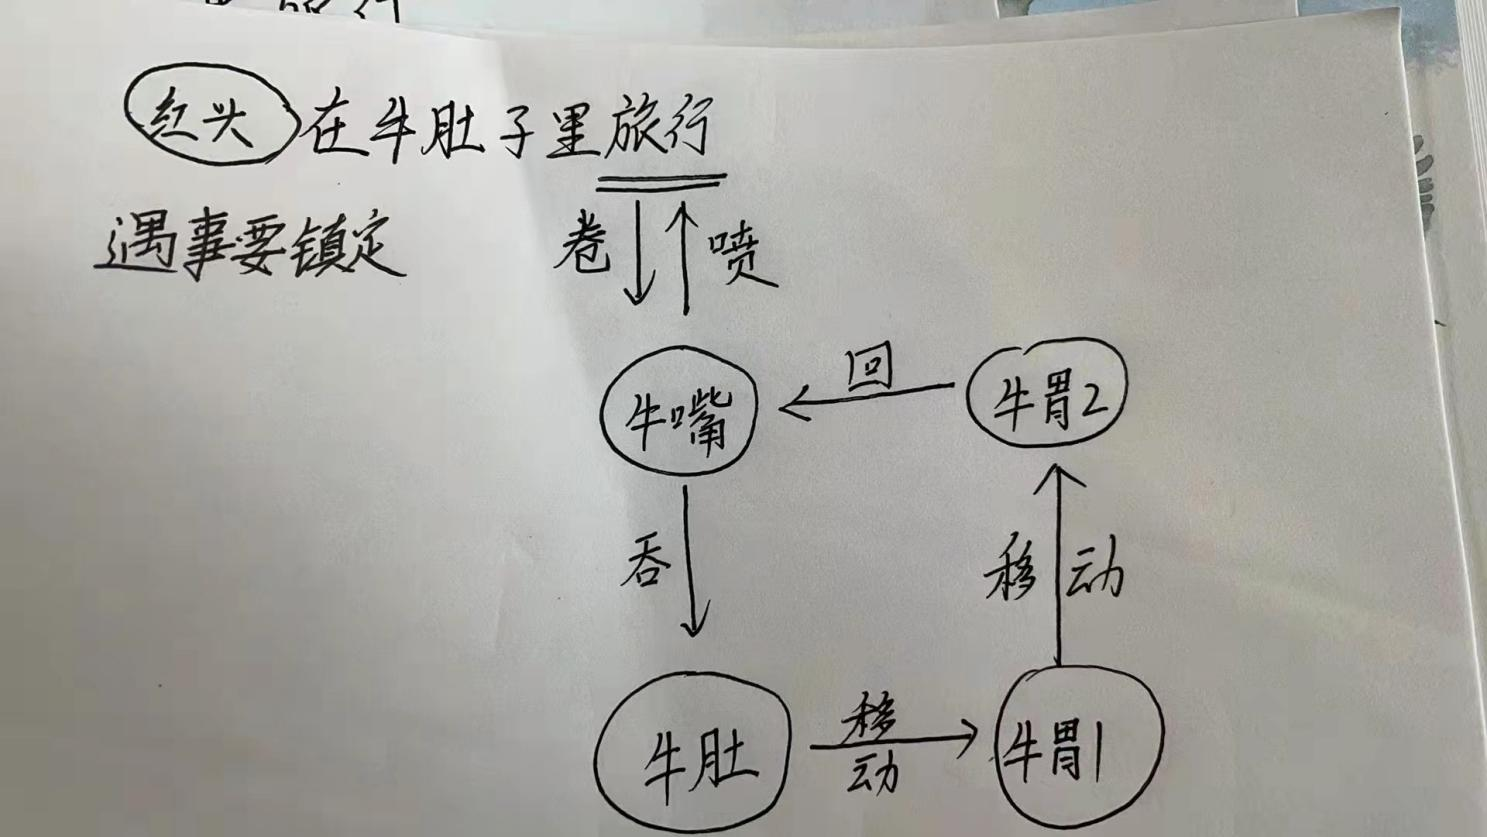 旅行
红头在牛肚子里旅行
遇事要镇定
卷 喷
牛嘴 回 牛胃2
吞 移动
牛肚 移动 牛胃1